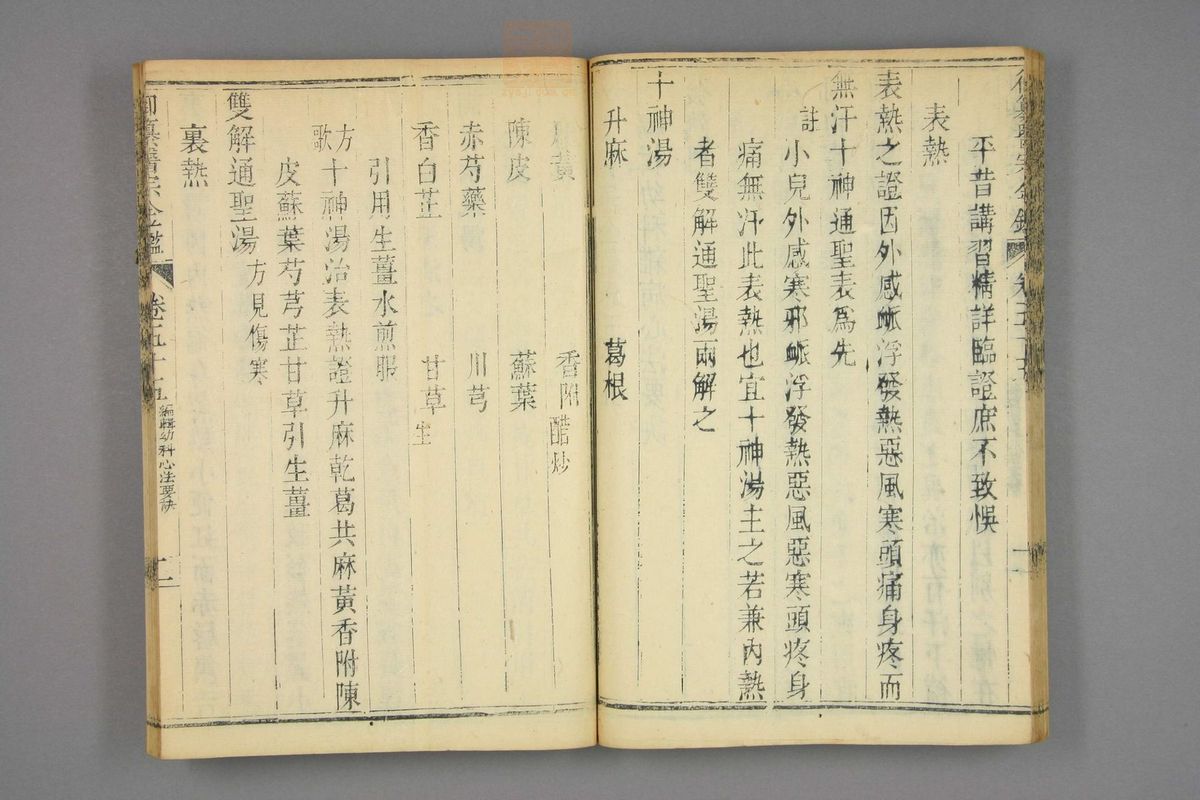 平昔講習精詳臨證庶不致悞
表熱
表熱之證因外感脈浮發熱惡風寒頭痛身疼而
無汗十神通聖表為先
註 小兒外感寒邪脈浮發熱惡風惡寒頭疼身
痛無汗此表熱也宜十神湯主之若兼內熱
者雙解通聖湯兩解之
十神湯
升麻 葛根
黃 香附醋炒
陳皮 蘇葉
赤芍藥 川芎
香白芷 甘草生
引用生薑水煎服
方歌 十神湯治表熱證升麻乾葛共麻黃香附陳
皮蘇葉芍芎芷甘草引生薑
雙解通聖湯 方見傷寒
裏熱
御纂醫宗金鑑 卷五十五 編輯幼科心法要訣